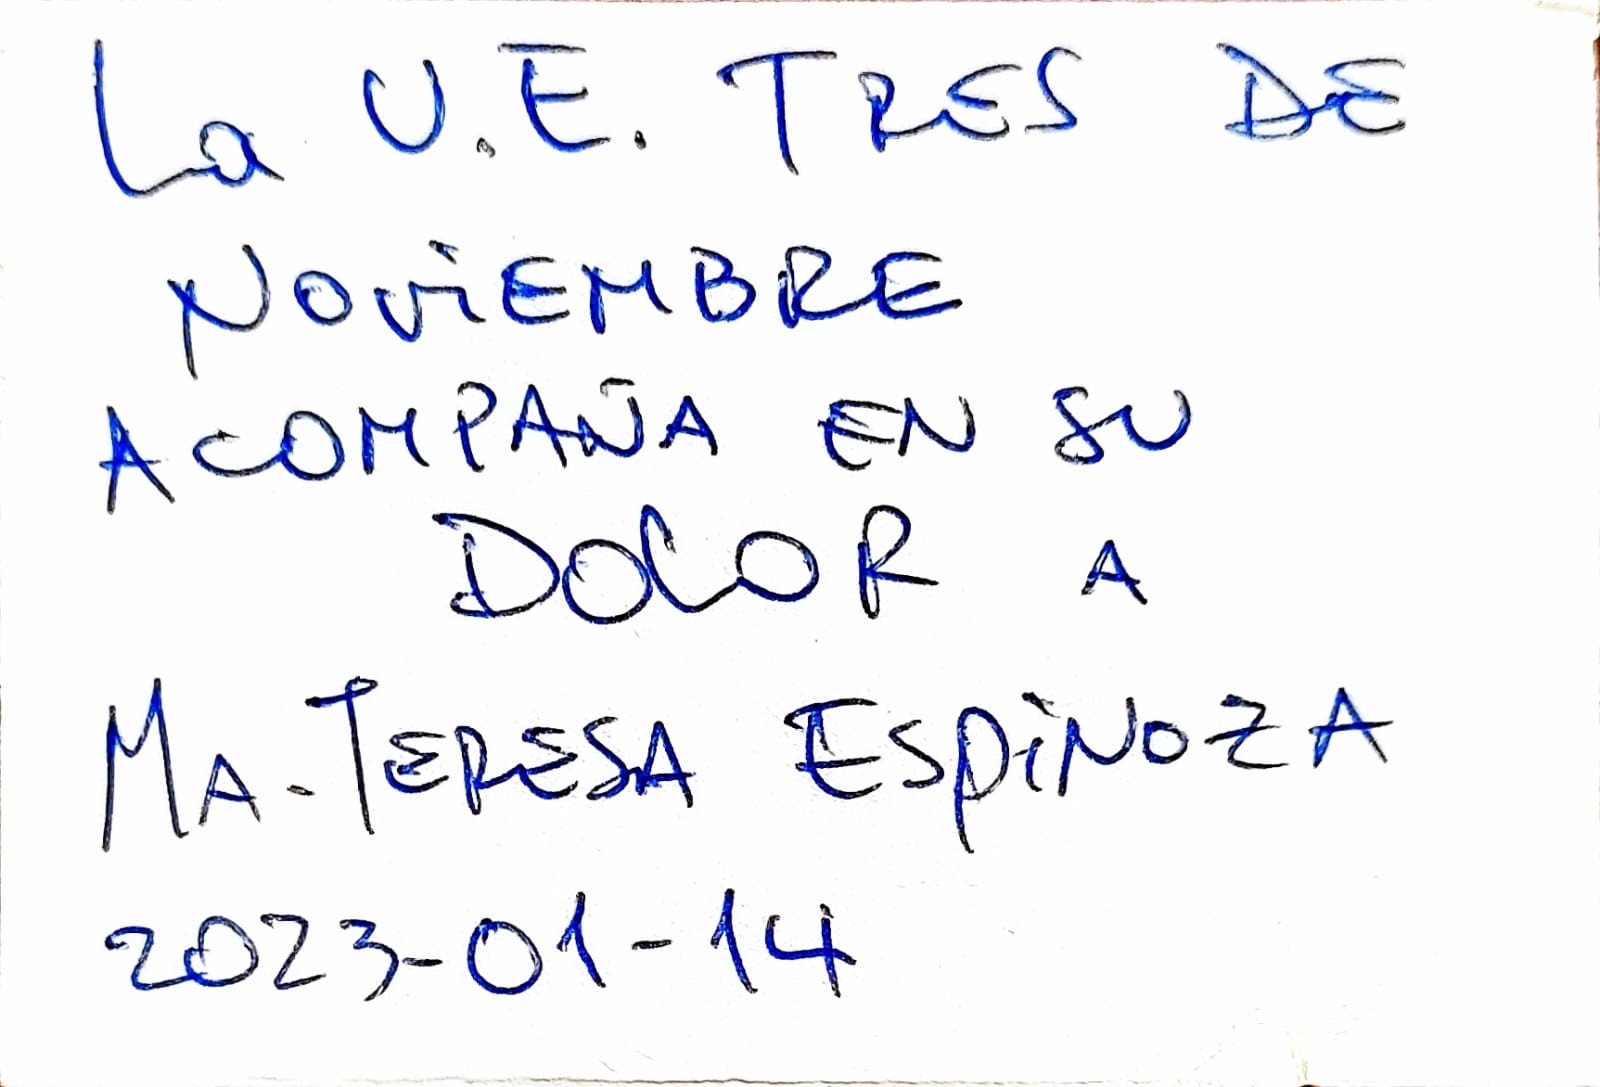 La U.E. TRES DE
NOViEMBRE
ACOMPAÑA EN SU
DOLOR A
MA. TERESA ESPiNOZA
2023-01-14